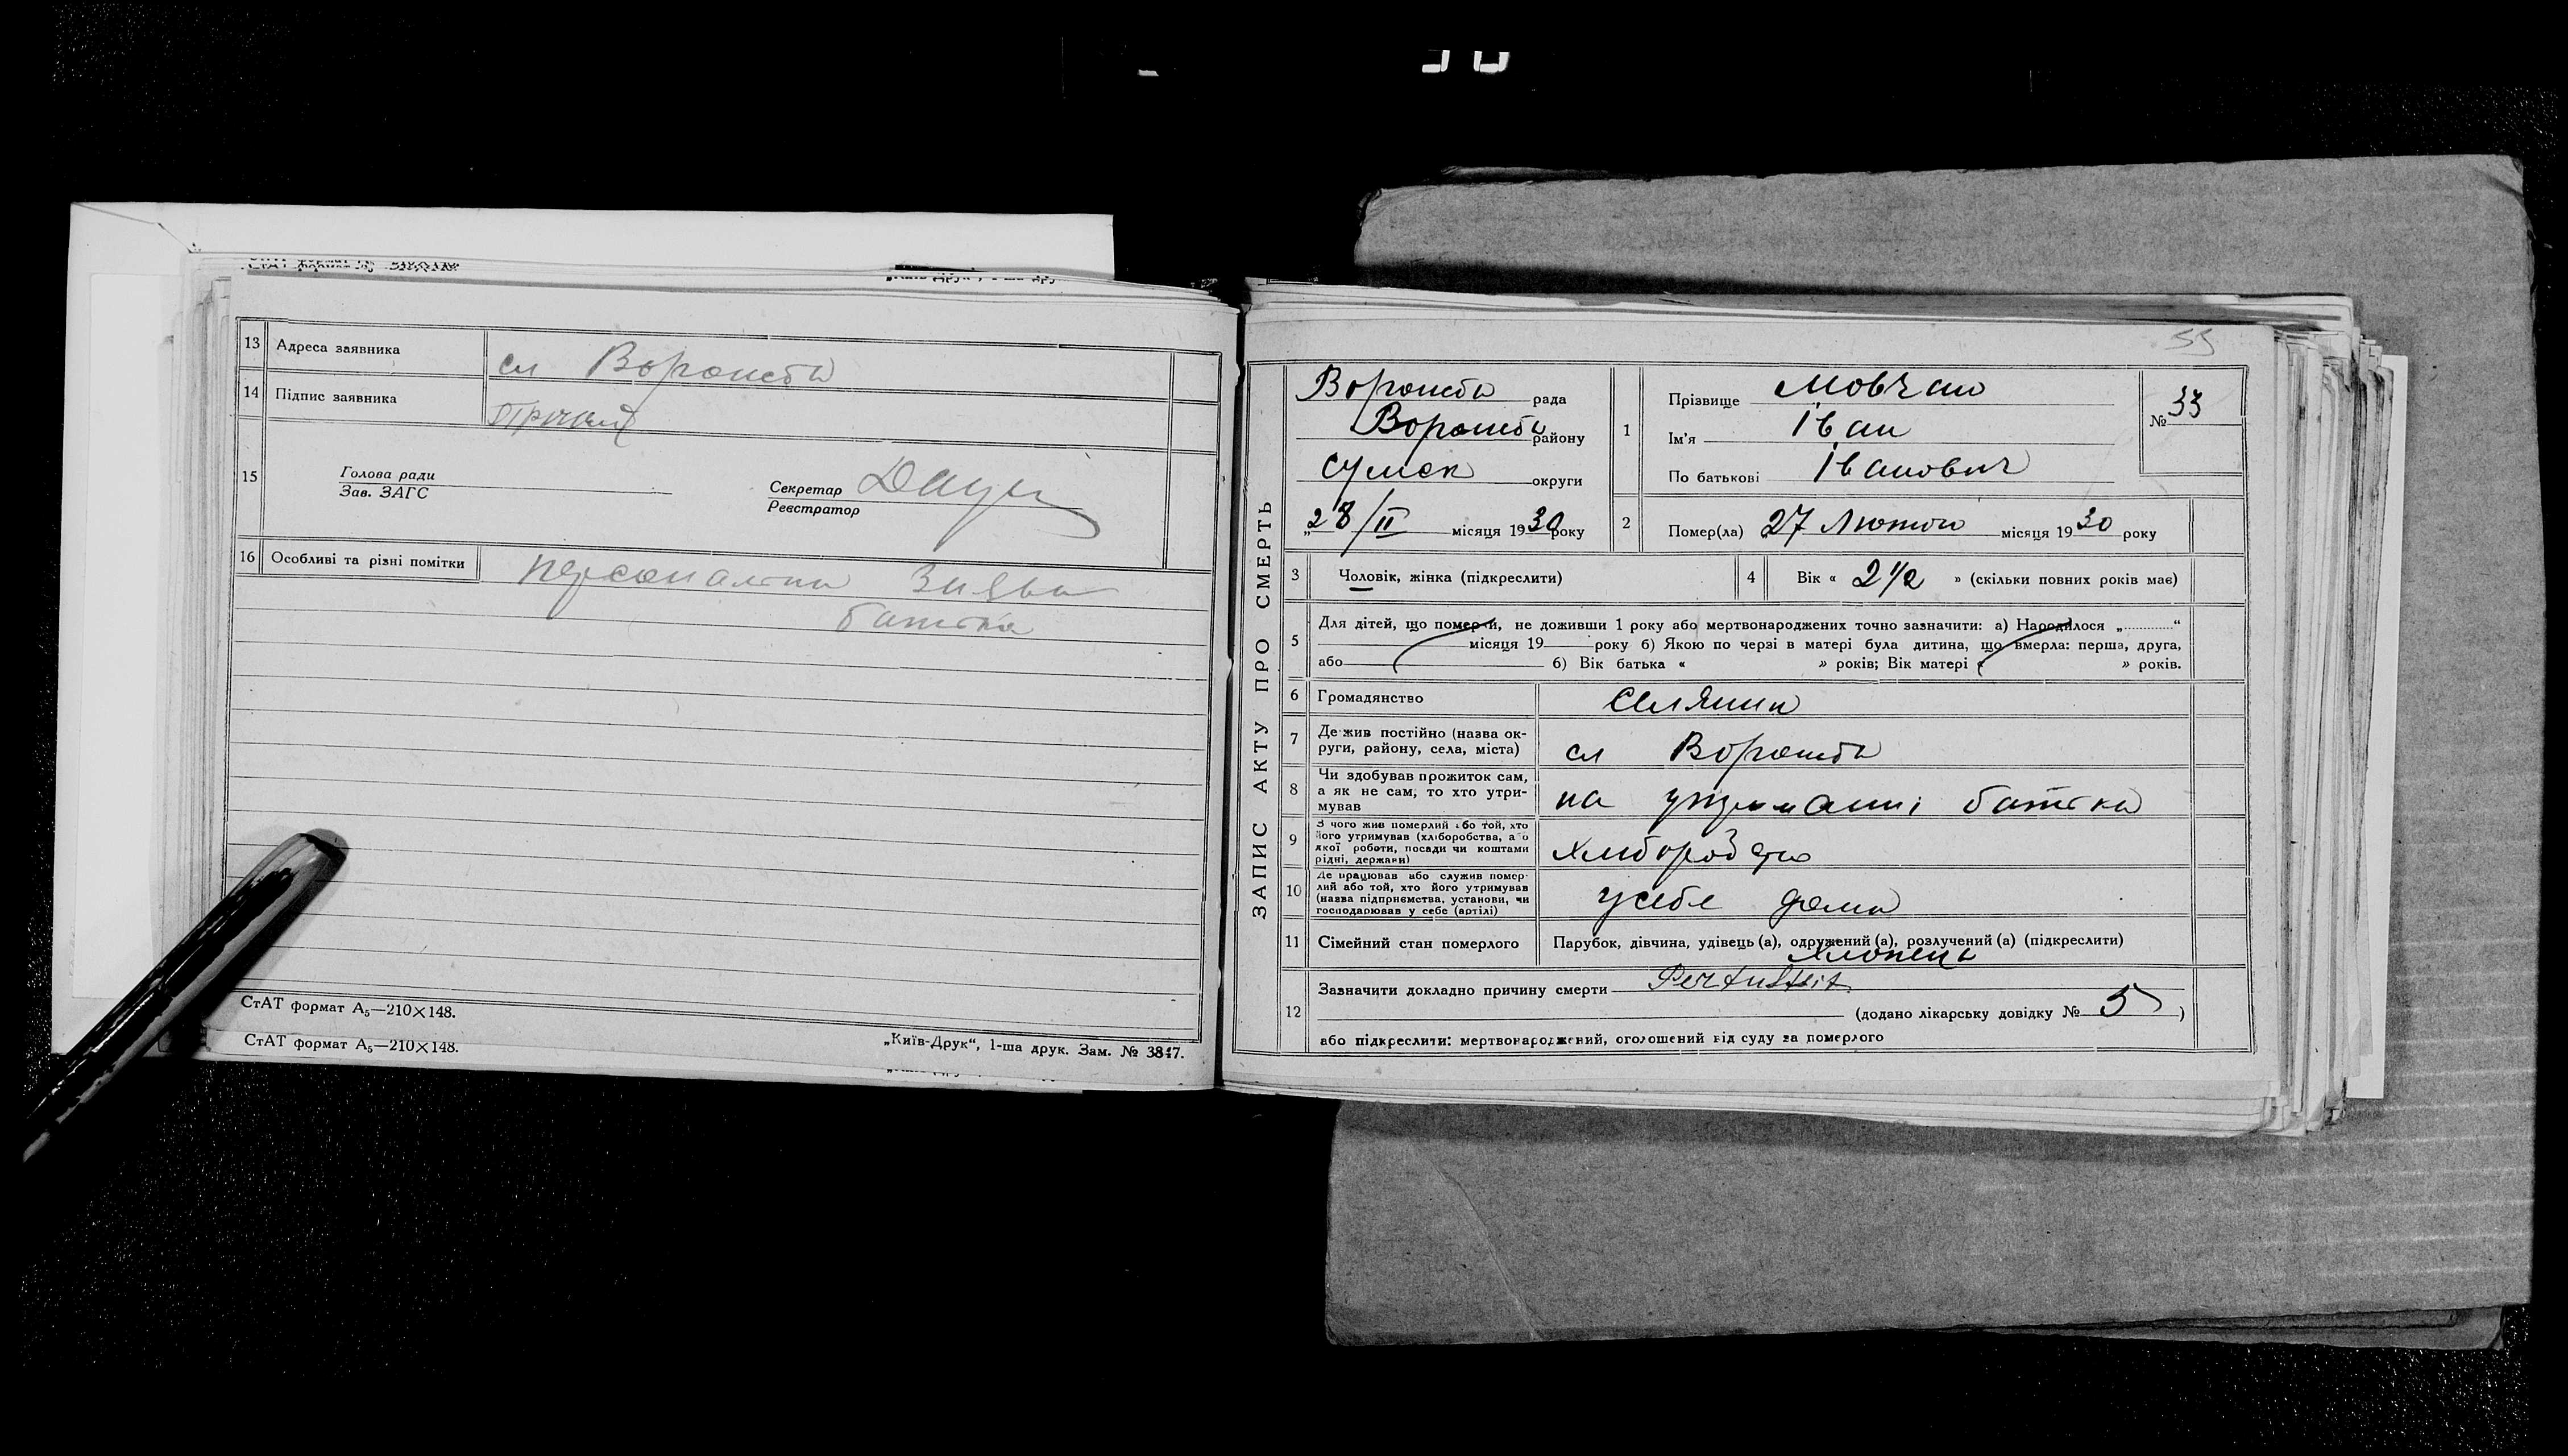 13 Адреса заявника сл Ворожба
14 Підпис заявника
15 Голова ради
Зав. ЗАГС
Секретар
Реєстратор
16 Особливі та різні помітки персональна Заява
батька
СтАТ формат А₅—210×148.
СтАТ формат А₅—210×148.
„Київ-Друк“, 1-ша друк. Зам. № 3847.
55
ЗАПИС АКТУ ПРО СМЕРТЬ
Ворожба рада
Ворожба району
Сумск округи
„28/II місяця 1930 року
1 Прізвище Мовчан
Ім'я Іван
По батькові Іванович
№ 33
2 Помер(ла) 27 Лютого місяця 1930 року
3 Чоловік, жінка (підкреслити)
4 Вік « 2 1/2 » (скільки повних років має)
5 Для дітей, що померли, не доживши 1 року або мертвонароджених точно зазначити: а) Народилося „............“
місяця 19 року б) Якою по черзі в матері була дитина, що вмерла: перша, друга,
або б) Вік батька « » років; Вік матері « » років.
6 Громадянство Селянин
7 Де жив постійно (назва ок-
руги, району, села, міста) сл Ворожба
8 Чи здобував прожиток сам,
а як не сам, то хто утри-
мував на утриманні батька
9 З чого жив померлий або той, хто
його утримував (хліборобства, або
якої роботи, посади чи коштами
рідні, держави) Хліборобство
10 Де працював або служив помер-
лий або той, хто його утримував
(назва підприємства, установи, чи
господарював у себе (артілі) усебе дома
11 Сімейний стан померлого Парубок, дівчина, удівець (а), одружений (а), розлучений (а) (підкреслити)
Хлопець
12 Зазначити докладно причину смерти
(додано лікарську довідку № 5 )
або підкреслити: мертвонароджений, оголошений від суду за померлого